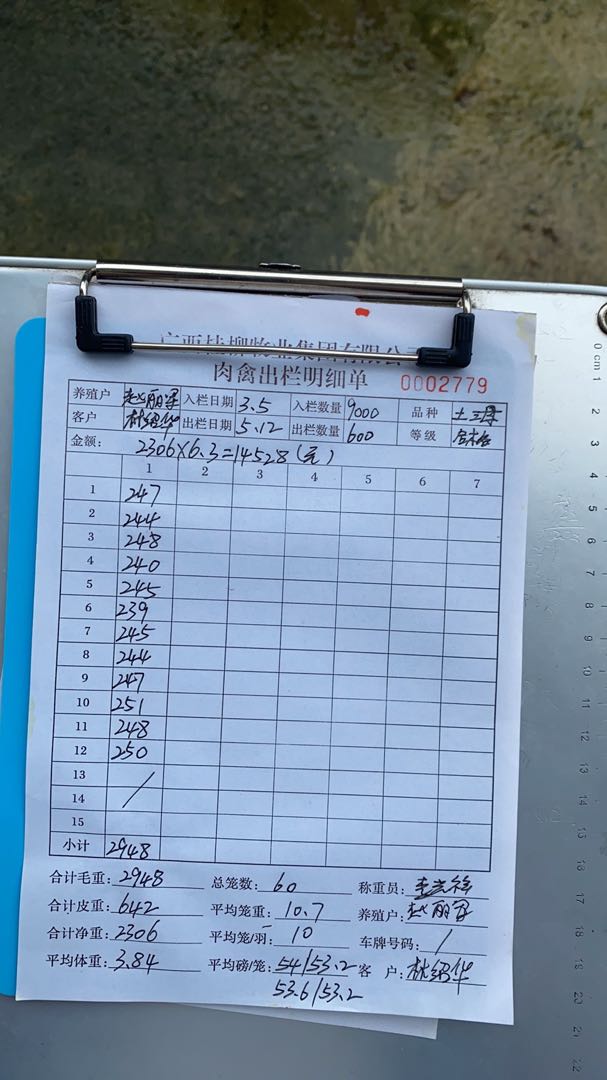 广西桂柳牧业集团有限公司
肉禽出栏明细单 0002779
养殖户 入栏日期 3.5 入栏数量 9000 品种
客户 林绍华 出栏日期 5.12 出栏数量 600 等级
金额: 2306×6.3=14528(元)
1 2 3 4 5 6 7
1 247
2 244
3 248
4 240
5 245
6 239
7 245
8 244
9 247
10 251
11 248
12 250
13 /
14
15
小计 2948
合计毛重: 2948 总笼数: 60 称重员:
合计皮重: 642 平均笼重: 10.7 养殖户:
合计净重: 2306 平均笼/羽: 10 车牌号码: /
平均体重: 3.84 平均磅/笼: 54/53.2 客 户: 林绍华
53.6/53.2
0 cm 1 2 3 4 5 6 7 8 9 10 11 12 13 14 15 16 17 18 19 20 21 22